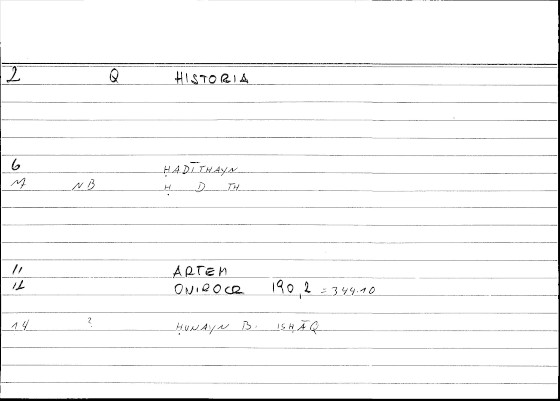 2 Q HISTORIA
6 ḤADĪTHAYN
M NB Ḥ D TH
11 ARTEM
12 ONIROCR 190,2 = 344.10
14 ? ḤUNAYN B. ISḤĀQ